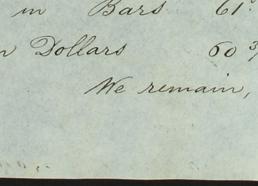 in Bars 61
n Dollars 60 3/
We remain,